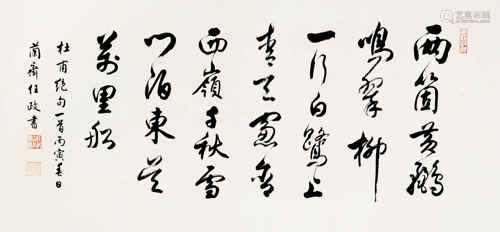 兩箇黃鸝
鳴翠柳
一行白鷺上
青天窗含
西嶺千秋雪
門泊東吳
萬里船
杜甫絕句一首丙寅春日
蘭齋任政書